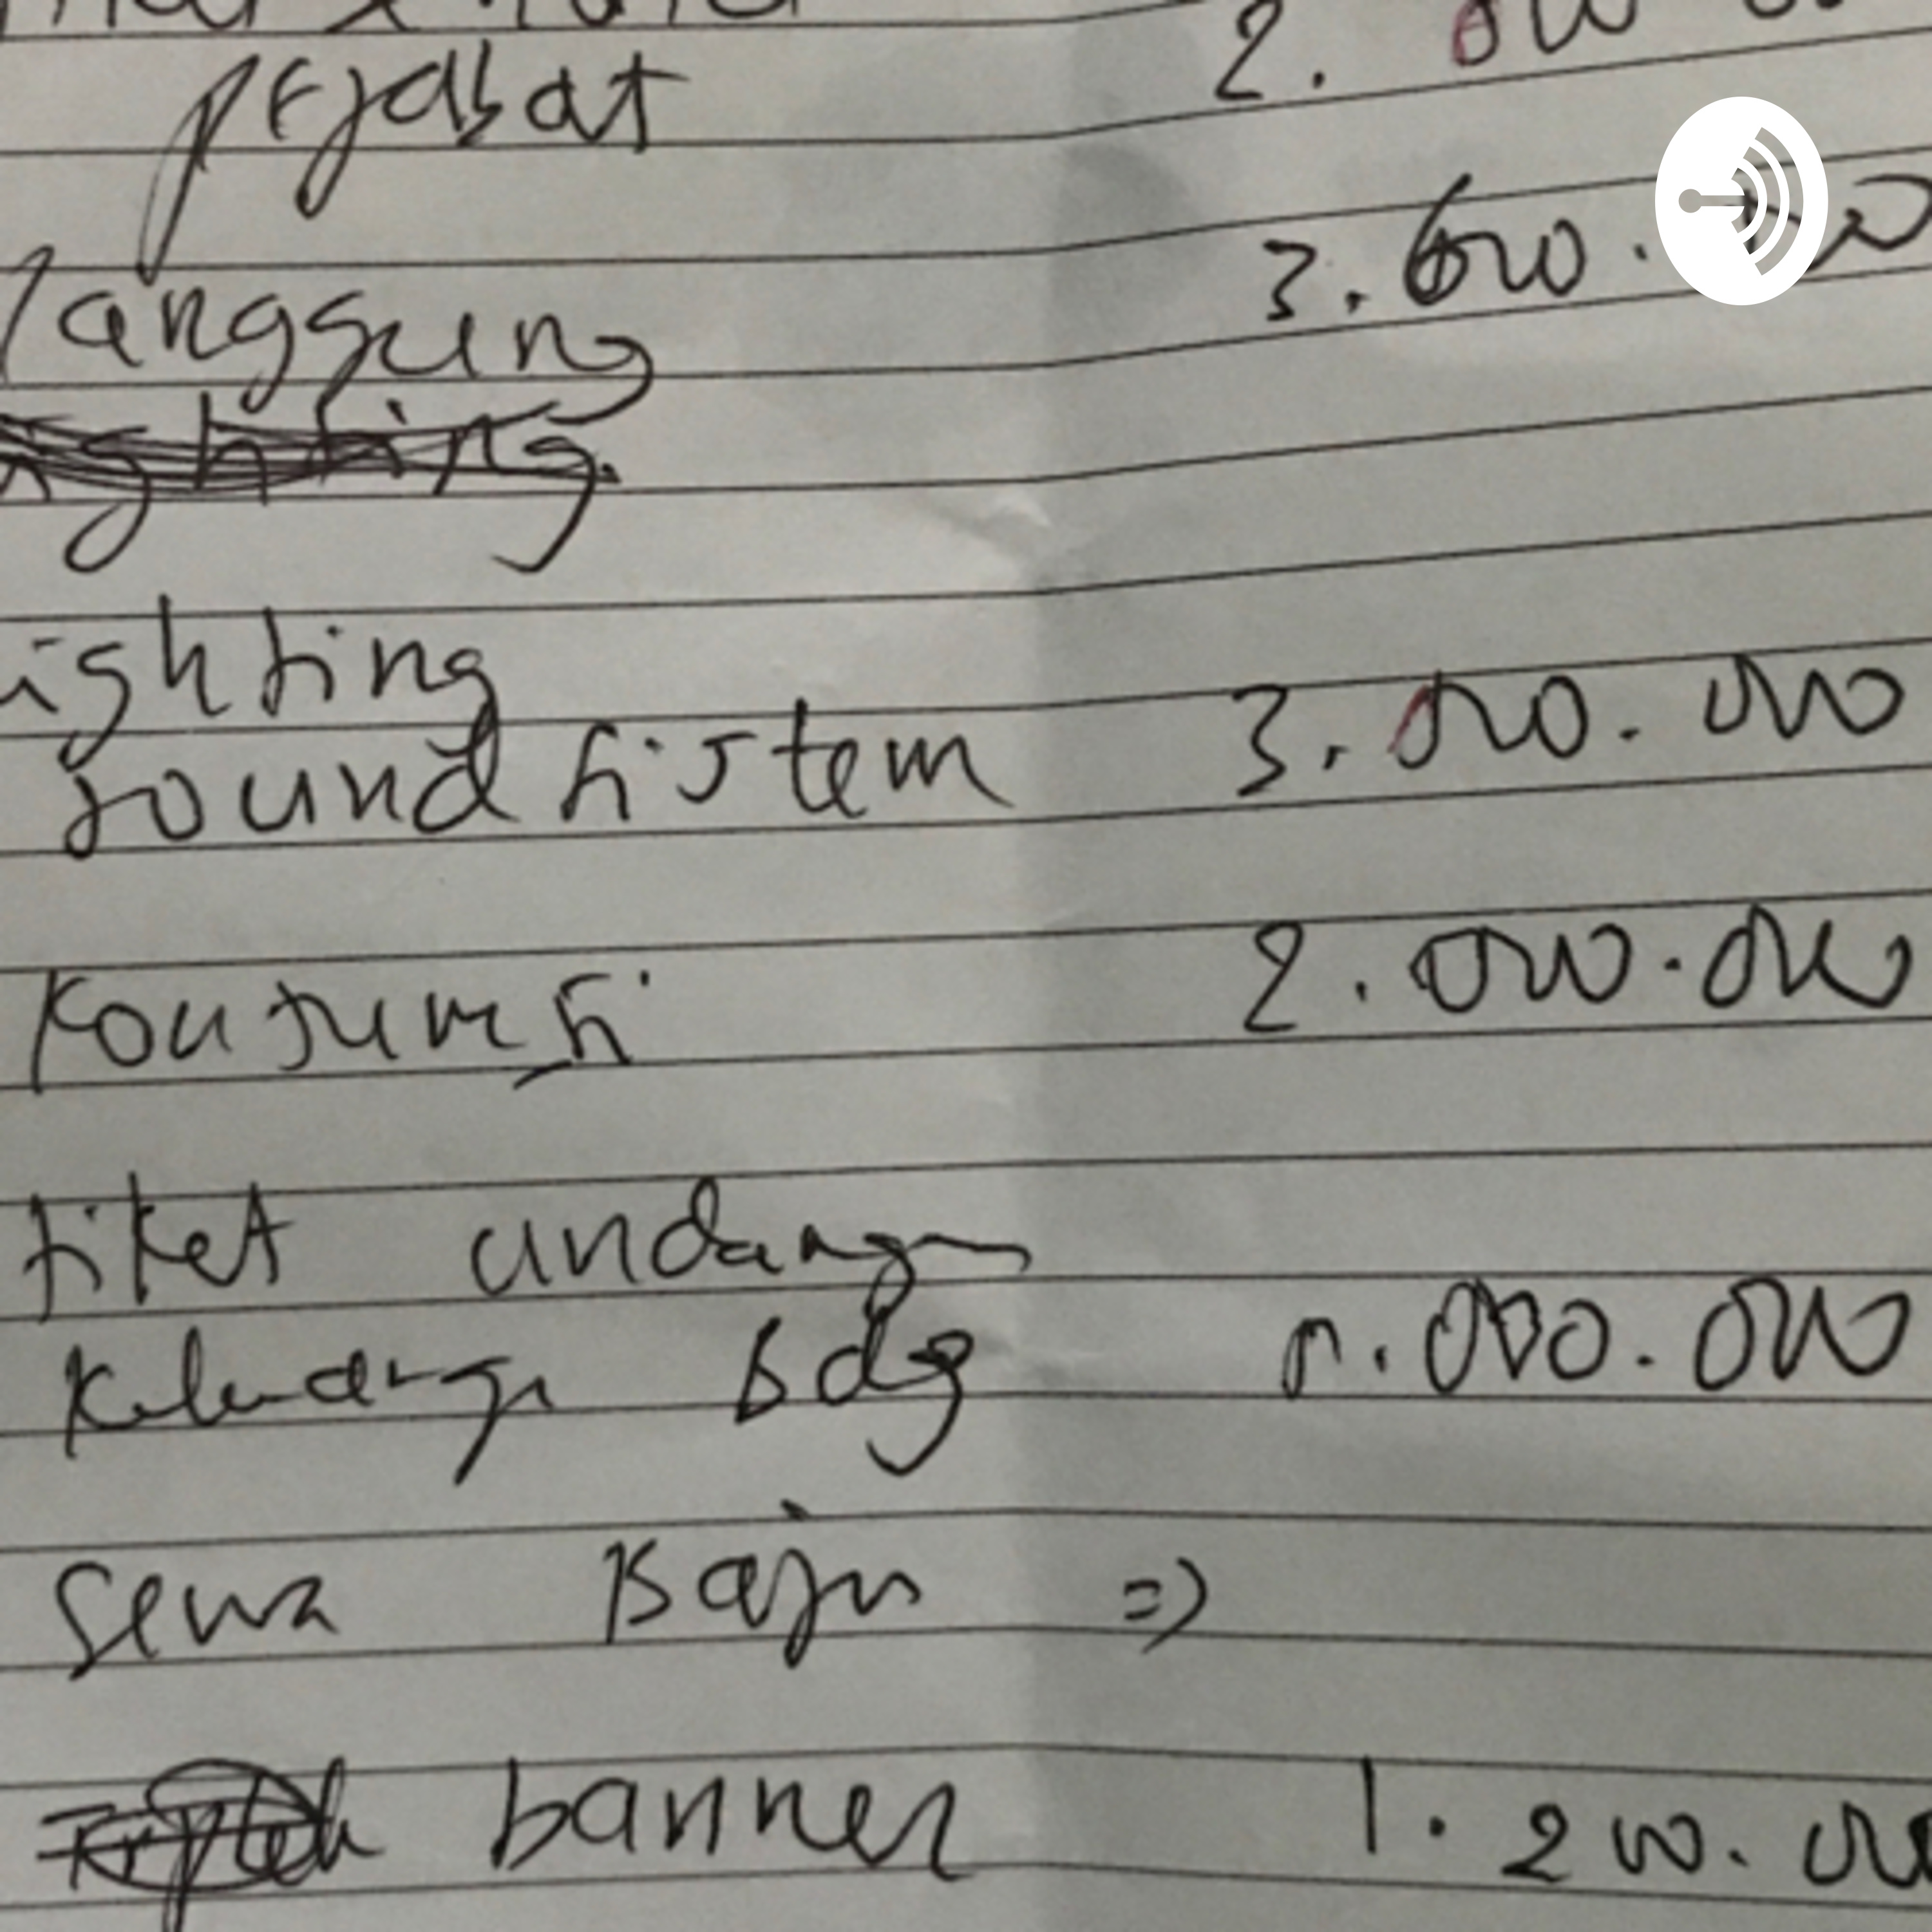 pejabat 2. 000
langsung 3. 600.
lighting
sound sistem 3. 000. 000
Konsumsi 2. 000. 000
tiket undangan
Keluarga Bdg 000. 000
Sewa Baju =>
banner 1. 200. 000